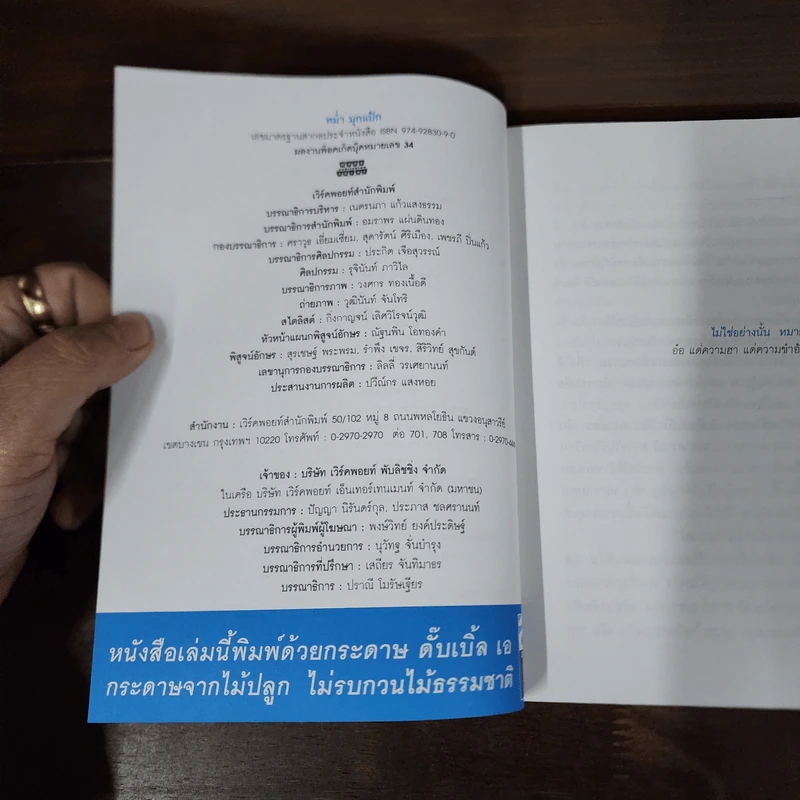 หม่ำ มุกแป้ก
เลขมาตรฐานสากลประจำหนังสือ ISBN 974-92830-9-0
ผลงานพ็อคเก็ตบุ๊คหมายเลข 34
เวิร์คพอยท์สำนักพิมพ์
บรรณาธิการบริหาร : เนตรนภา แก้วแสงธรรม
บรรณาธิการสำนักพิมพ์ : อมราพร แผ่นดินทอง
กองบรรณาธิการ : ศราวุธ เอี่ยมเซี่ยม, สุดารัตน์ ศิริเมือง, เพชรภี ปิ่นแก้ว
บรรณาธิการศิลปกรรม : ประกิต เจือสุวรรณ์
ศิลปกรรม : รุจินันท์ ภาวิไล
บรรณาธิการภาพ : วงศกร ทองเนื้อดี
ถ่ายภาพ : วุฒินันท์ จันโทริ
สไตลิสต์ : กิ่งกาญจน์ เลิศวิโรจน์วุฒิ
หัวหน้าแผนกพิสูจน์อักษร : ณัฐนพิน โอทองคำ
พิสูจน์อักษร : สุรเชษฐ์ พระพรม, รำพึง เขจร, สิริวิทย์ สุขกันต์
เลขานุการกองบรรณาธิการ : ลิลลี่ วรเศยานนท์
ประสานงานการผลิต : ปวีณ์กร แสงหอย
สำนักงาน : เวิร์คพอยท์สำนักพิมพ์ 50/102 หมู่ 8 ถนนพหลโยธิน แขวงอนุสาวรีย์
เขตบางเขน กรุงเทพฯ 10220 โทรศัพท์ : 0-2970-2970 ต่อ 701, 708 โทรสาร : 0-2970
เจ้าของ : บริษัท เวิร์คพอยท์ พับลิชชิ่ง จำกัด
ในเครือ บริษัท เวิร์คพอยท์ เอ็นเทอร์เทนเมนท์ จำกัด (มหาชน)
ประธานกรรมการ : ปัญญา นิรันดร์กุล, ประภาส ชลศรานนท์
บรรณาธิการผู้พิมพ์ผู้โฆษณา : พงษ์วิทย์ ยงค์ประดิษฐ์
บรรณาธิการอำนวยการ : นุวัทฐ จั่นบำรุง
บรรณาธิการที่ปรึกษา : เสถียร จันทิมาธร
บรรณาธิการ : ปราณี โมรัษเฐียร
หนังสือเล่มนี้พิมพ์ด้วยกระดาษ ดั๊บเบิ้ล เอ
กระดาษจากไม้ปลูก ไม่รบกวนไม้ธรรมชาติ
ไม่ใช่อย่างนั้น หมาย
อ๋อ แต่ความฮา แต่ความขำอั